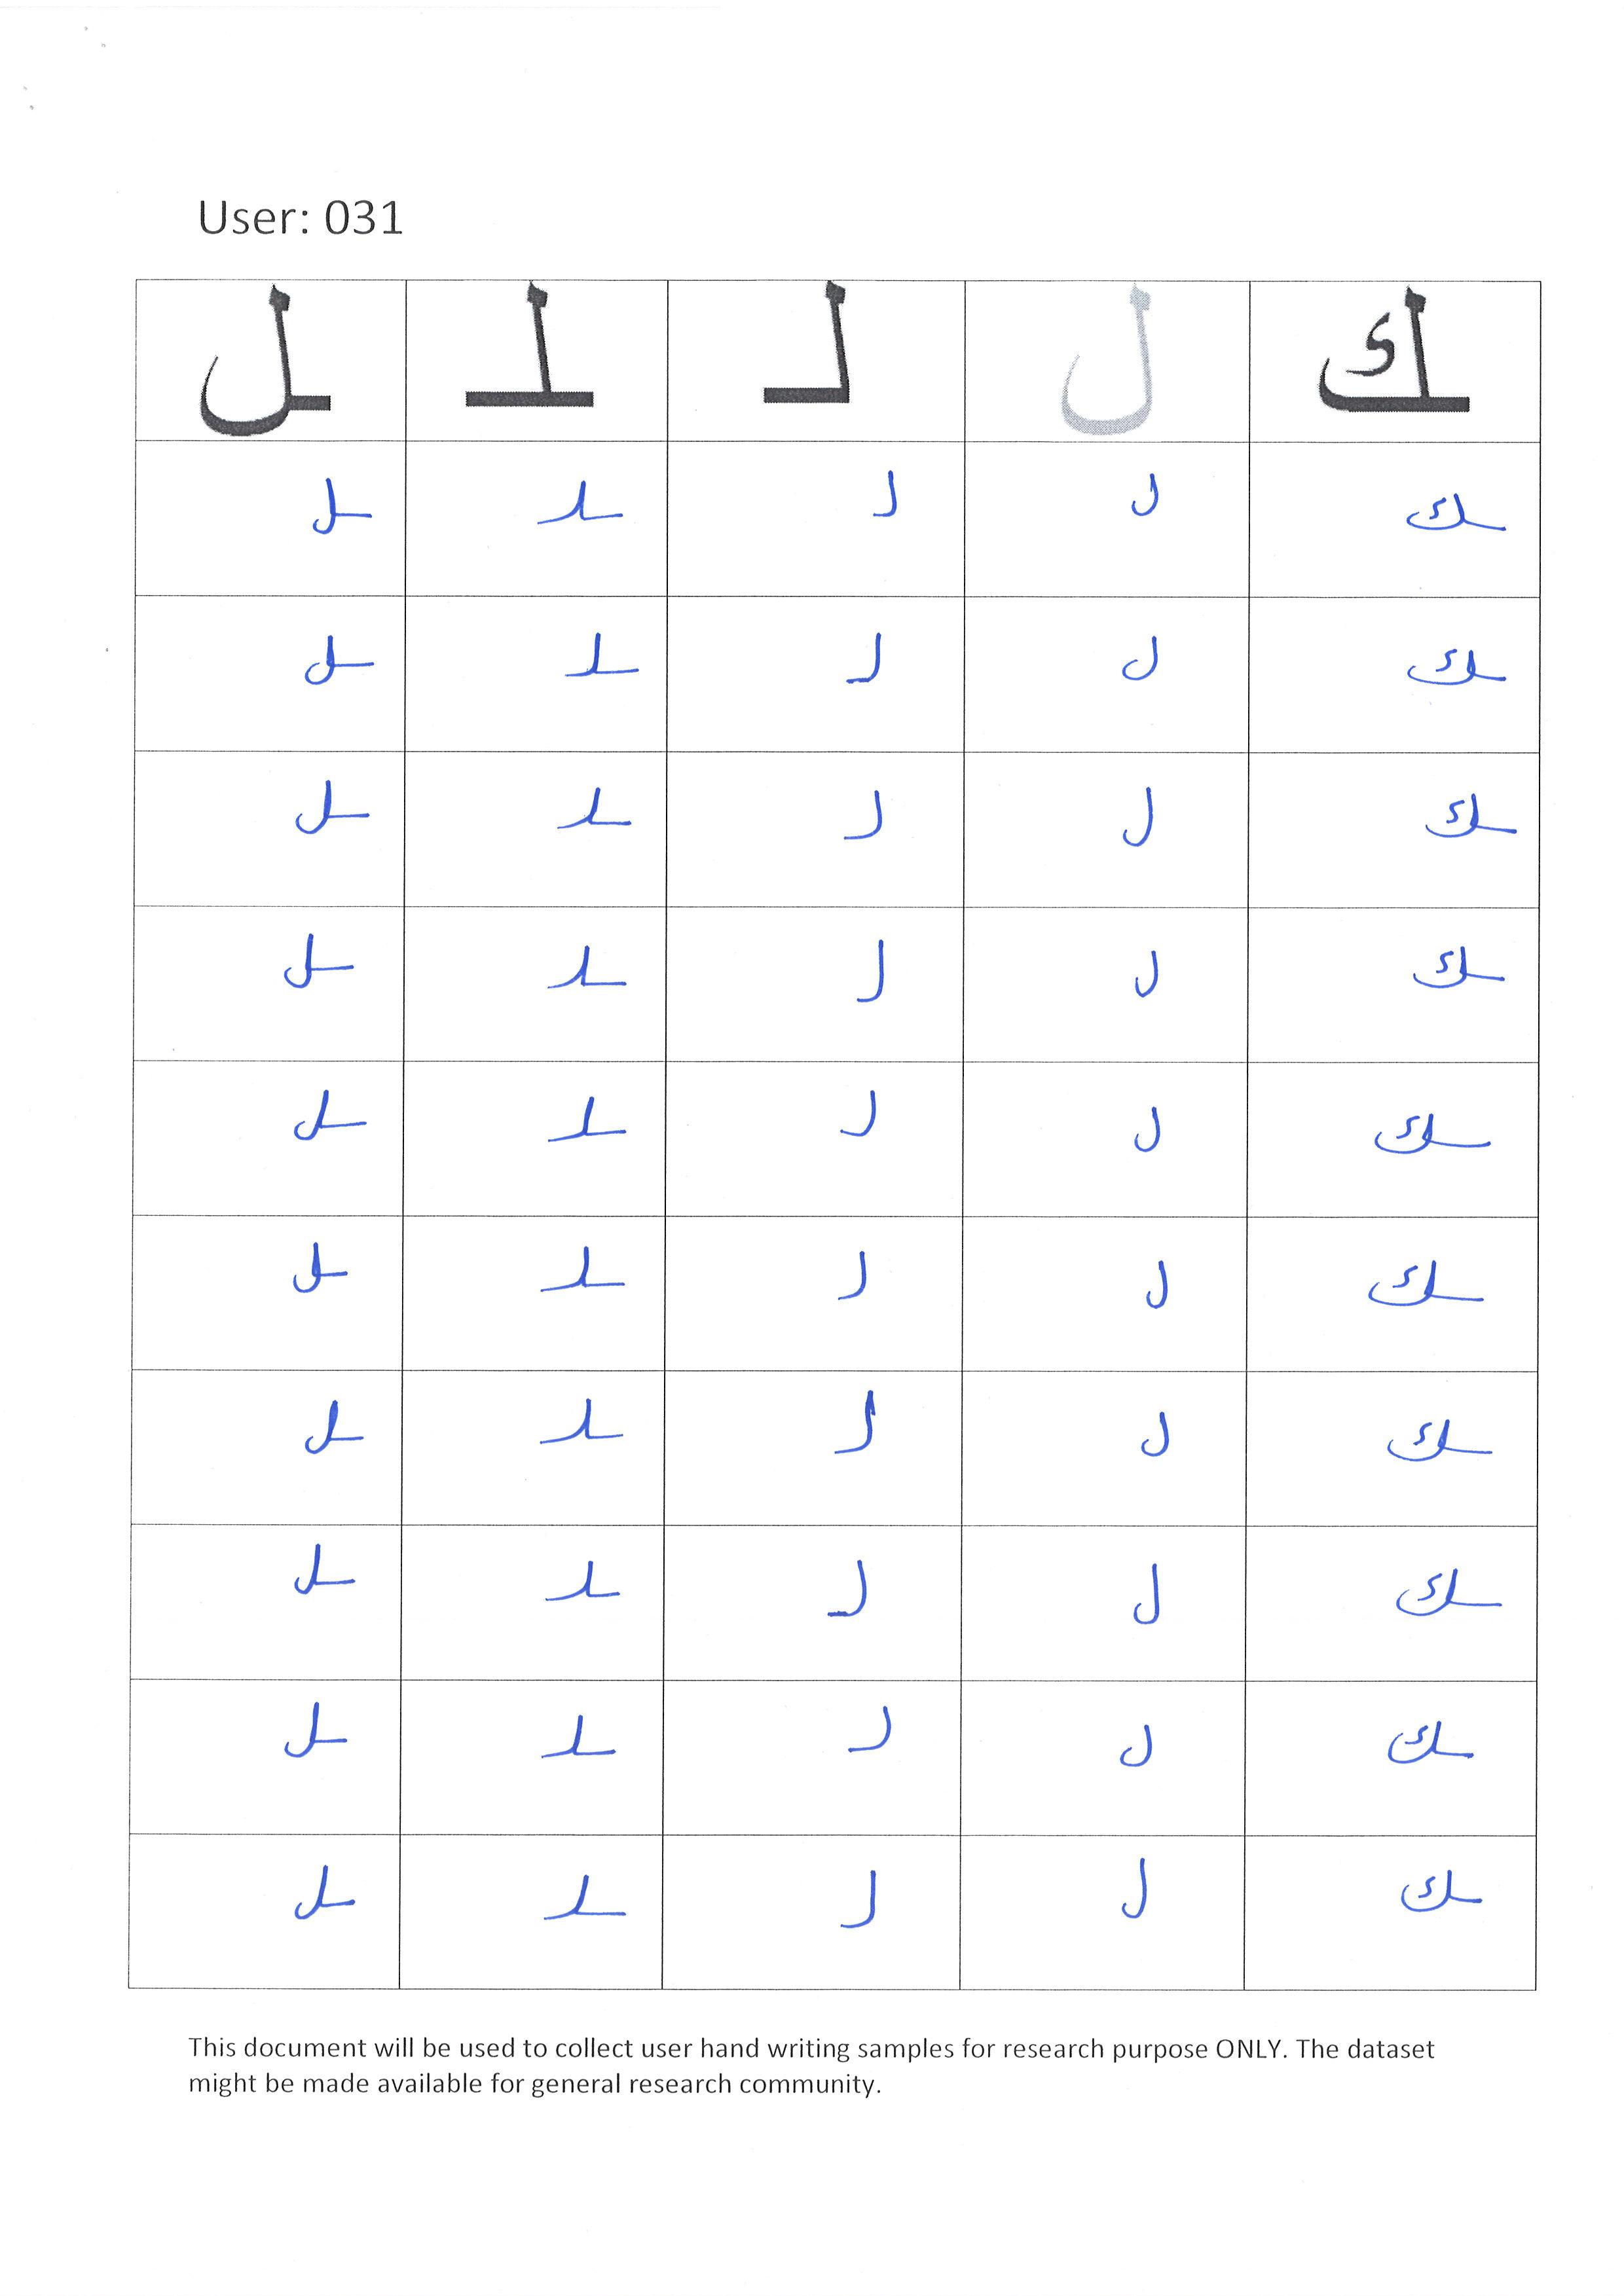 User: 031
ـك ل لـ ـلـ ـل
ـك ل لـ ـلـ ـل
ـك ل لـ ـلـ ـل
ـك ل لـ ـلـ ـل
ـك ل لـ ـلـ ـل
ـك ل لـ ـلـ ـل
ـك ل لـ ـلـ ـل
ـك ل لـ ـلـ ـل
ـك ل لـ ـلـ ـل
ـك ل لـ ـلـ ـل
ـك ل لـ ـلـ ـل
This document will be used to collect user hand writing samples for research purpose ONLY. The dataset
might be made available for general research community.